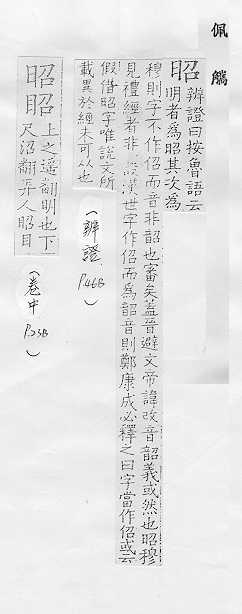 佩觿
昭 辨證曰按魯語云
明者為昭其次為
穆則字不作佋而音非韶也審矣蓋晉避文帝諱改音韶義或然也昭穆
見禮經者非一設漢世字作佋而為韶音則鄭康成必釋之曰字當作佋或云
假借昭字唯說文所
載異於經未可從也
(辨證 P46B)
昭眧 上之遥翻明也下
尺沼翻弄人眧目
(卷中 P23B)